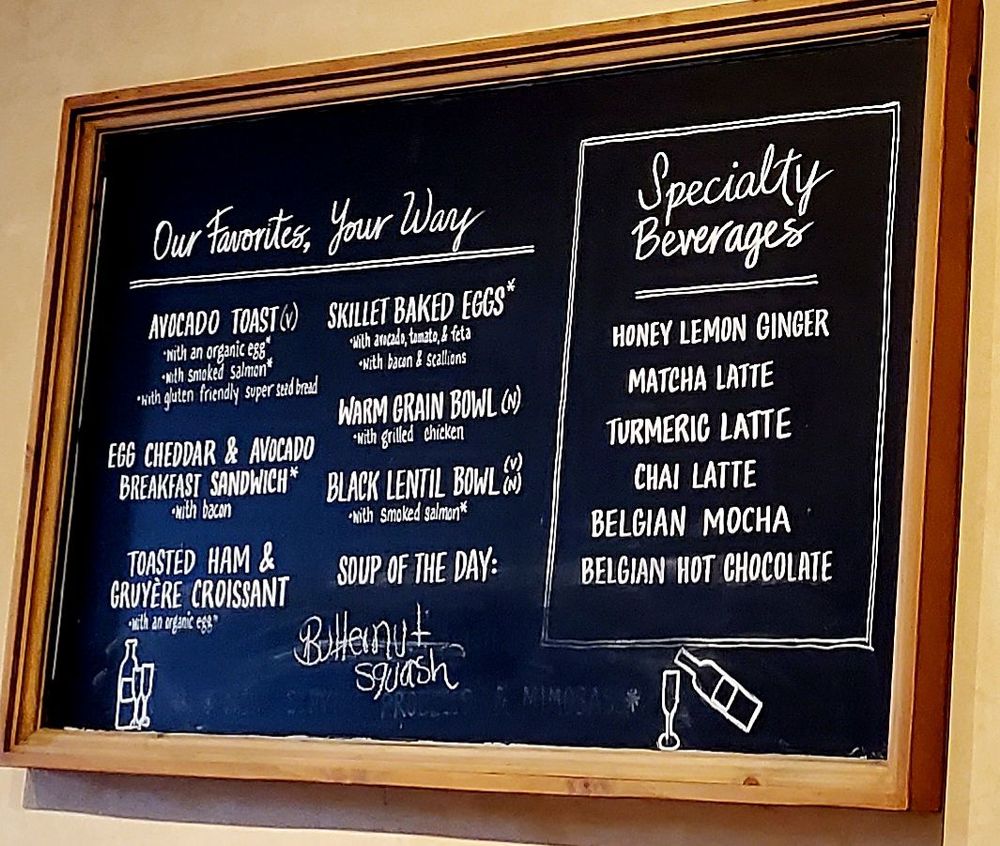 Our Favorites, Your Way
AVOCADO TOAST (V)
•with an organic egg*
•with smoked salmon*
•with gluten friendly super seed bread
EGG CHEDDAR & AVOCADO
BREAKFAST SANDWICH*
•with bacon
TOASTED HAM &
GRUYÈRE CROISSANT
•with an organic egg*
SKILLET BAKED EGGS*
•with avocado, tomato, & feta
•with bacon & scallions
WARM GRAIN BOWL (N)
•with grilled chicken
BLACK LENTIL BOWL (V) (N)
•with smoked salmon*
SOUP OF THE DAY:
Butternut
squash
& MIMOSAS *
Specialty
Beverages
HONEY LEMON GINGER
MATCHA LATTE
TURMERIC LATTE
CHAI LATTE
BELGIAN MOCHA
BELGIAN HOT CHOCOLATE